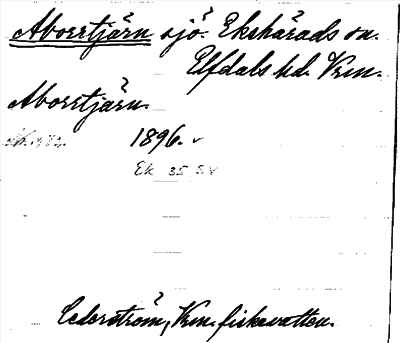 Aborrtjärn sjö. Ekshärads sn.
Elfdals hd. Vrm.
Aborrtjärn.
1896. v
Ek 35 S.V
Cederström, Vrm. fiskevatten.